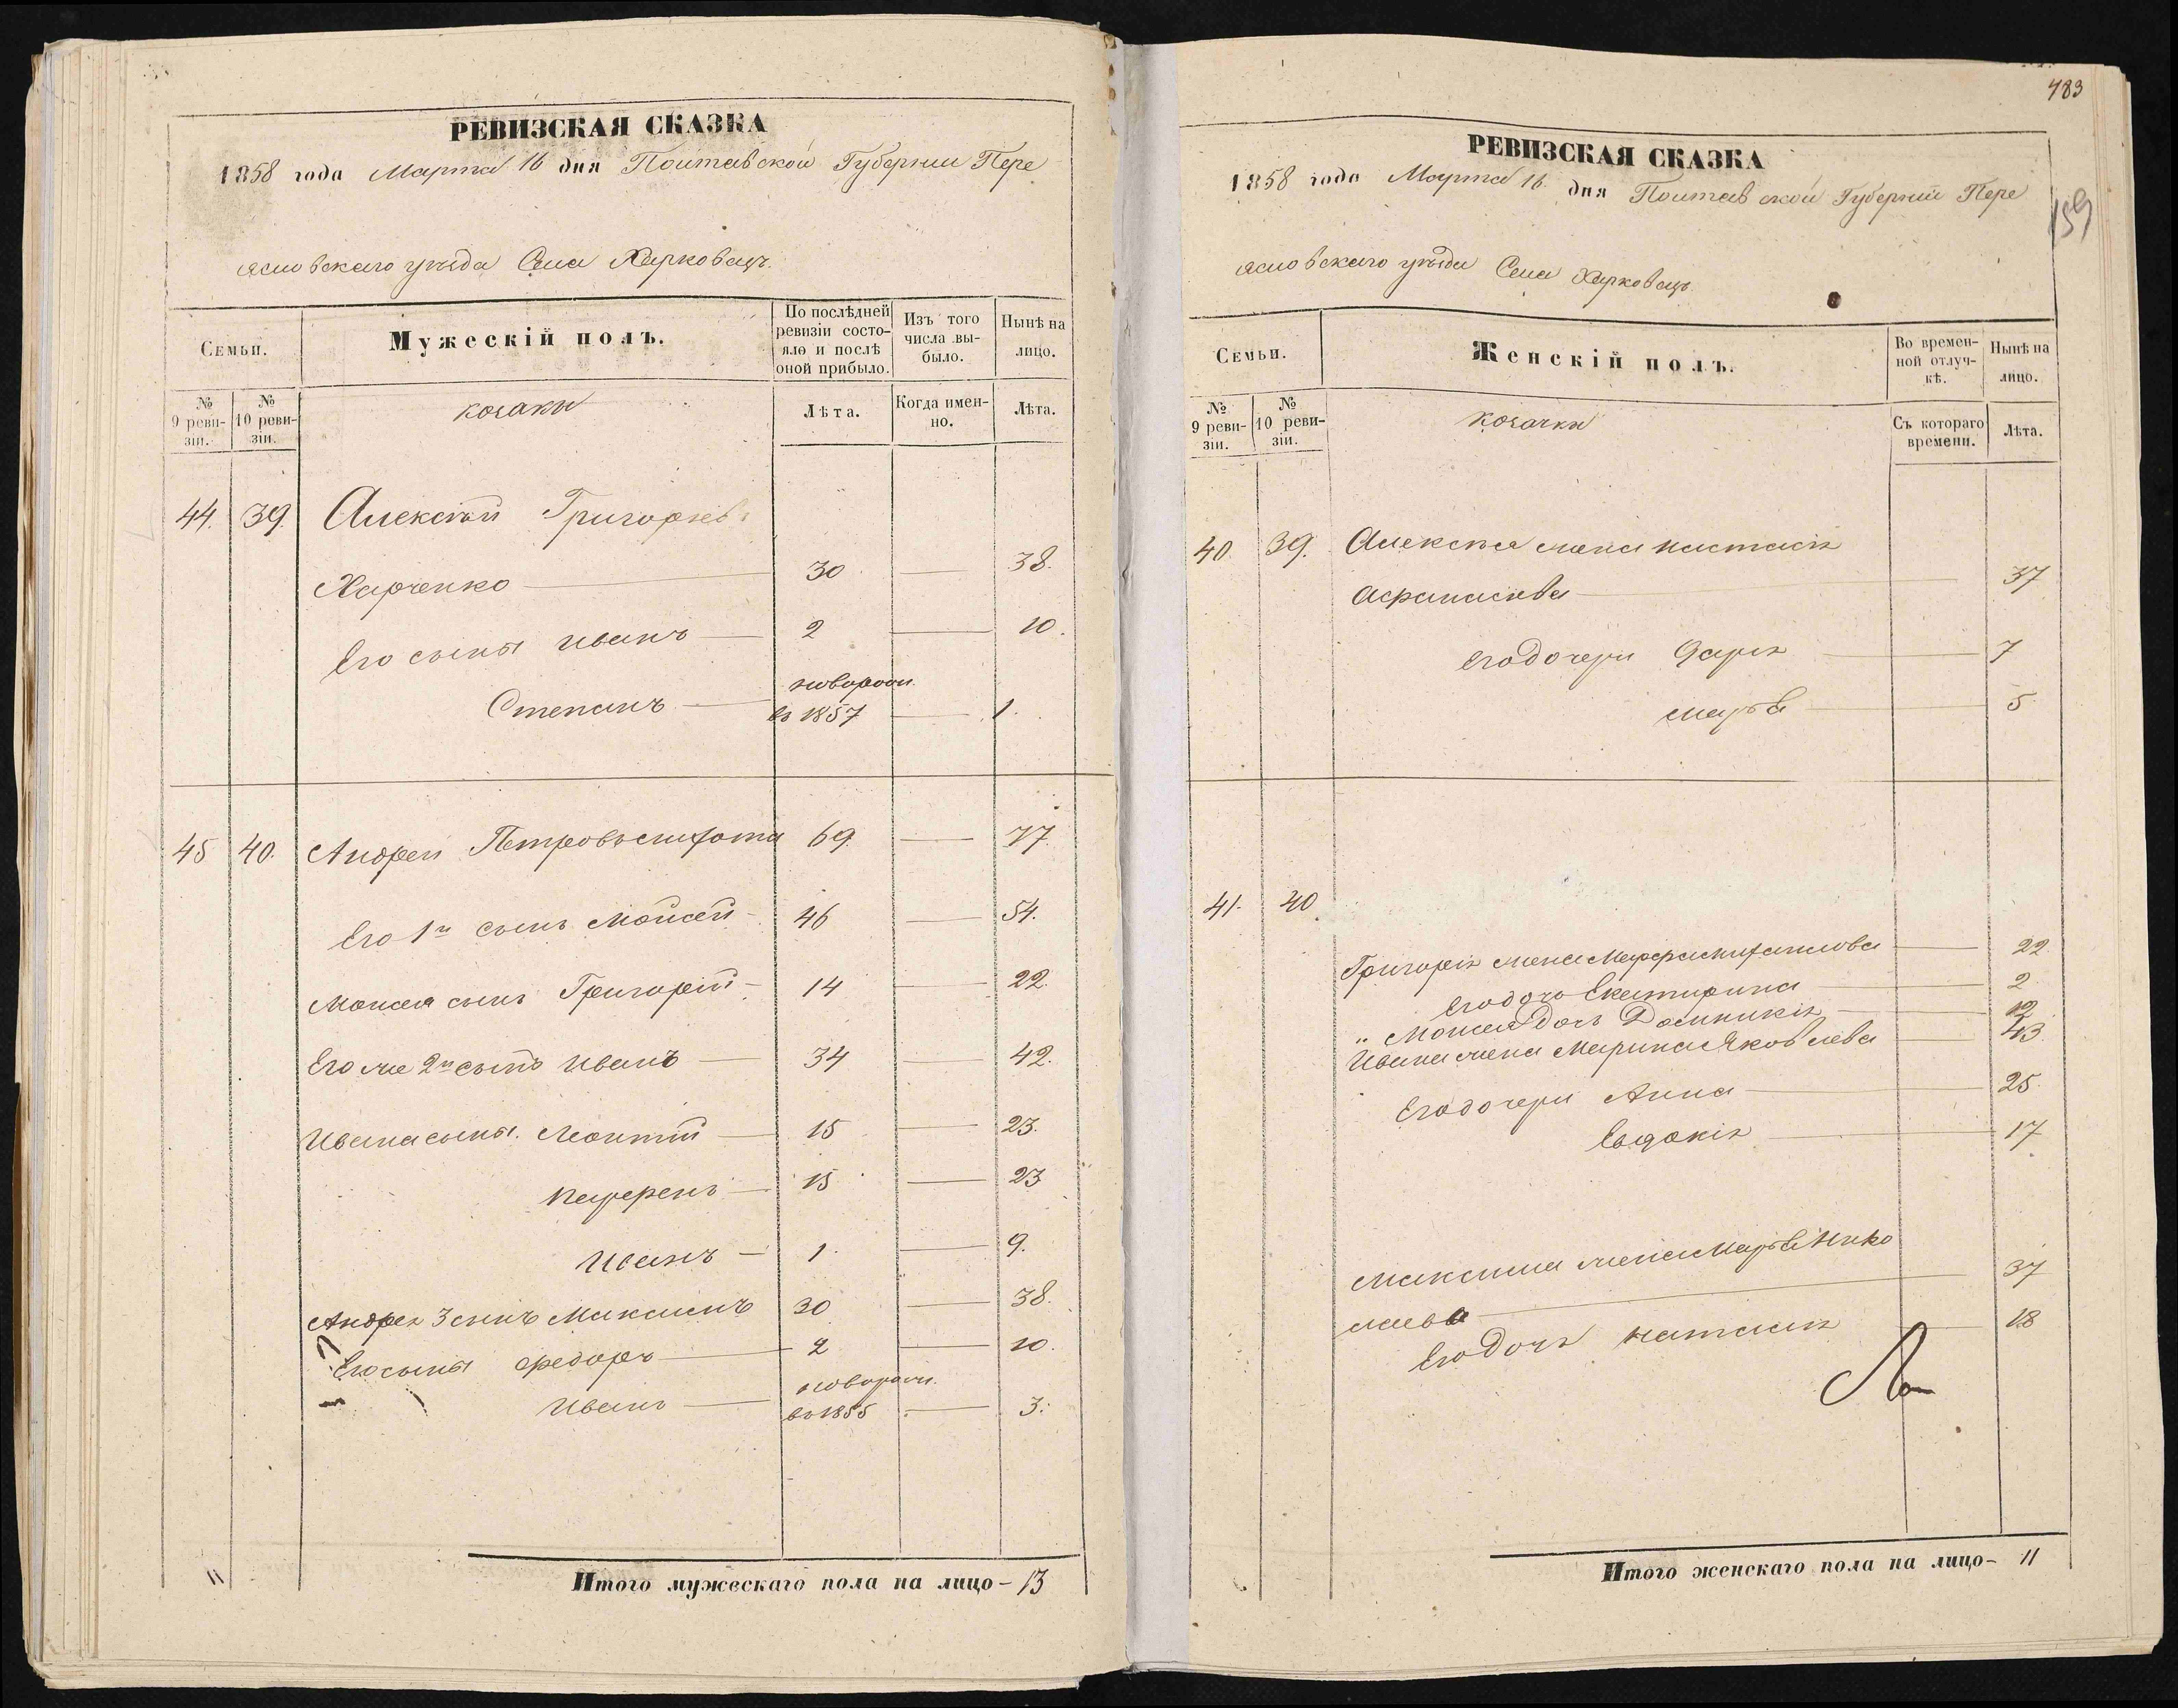 РЕВИЗСКАЯ СКАЗКА
1858 года Марта 16 дня Полтавской Губернии Пере
яславского уѣзда Села Харковецъ.
Семьи.
Мужескій полъ.
По послѣдней ревизіи состояло и послѣ оной прибыло.
Изъ того числа выбыло.
Нынѣ на лицо.
№ 9 ревизіи.
№ 10 ревизіи.
козаки
Лѣта.
Когда именно.
Лѣта.
44. 39. Алексѣй Григорьевъ
Харченко 30 38.
Его сыны Иванъ 2 10.
Степанъ новорожд. въ 1857 1.
45 40. Андрей Петровъ 69. 77.
Его 1й сынъ Мойсей 46 54.
Моисея сынъ Григорій 14 22.
Его же 2й сынъ Иванъ 34 42.
Ивана сыны. Леонтій 15 23.
15 23
Иванъ 1. 9.
Андрея 3 сынъ Максимъ 30 38.
Его сыны Федоръ 2 10.
Иванъ новорожд. въ 1855 3.
11
Итого мужескаго пола на лицо - 13
483
159
РЕВИЗСКАЯ СКАЗКА
1858 года Марта 16. дня Полтавской Губерніи Пере
яславского уѣзда Села Харковецъ.
Семьи.
Женскій полъ.
Во временной отлучкѣ.
Нынѣ на лицо.
№ 9 ревизіи.
№ 10 ревизіи.
козачки
Съ котораго времени.
Лѣта.
40. 39. Алексѣя жена Настасія
Афанасиева 37
Его дочери Дарія 7
Марфа 5
41. 40
Григорія жена Марфа 22
Его дочь Екатирина 2
" Моисея дочь Домникія 12
Ивана жена Марина Яковлева 43
Его дочери Анна 25
Евдокія 17
Максима жена Марфа Нико
лаева 37
Его дочь Наталія 18
Итого женскаго пола на лицо - 11